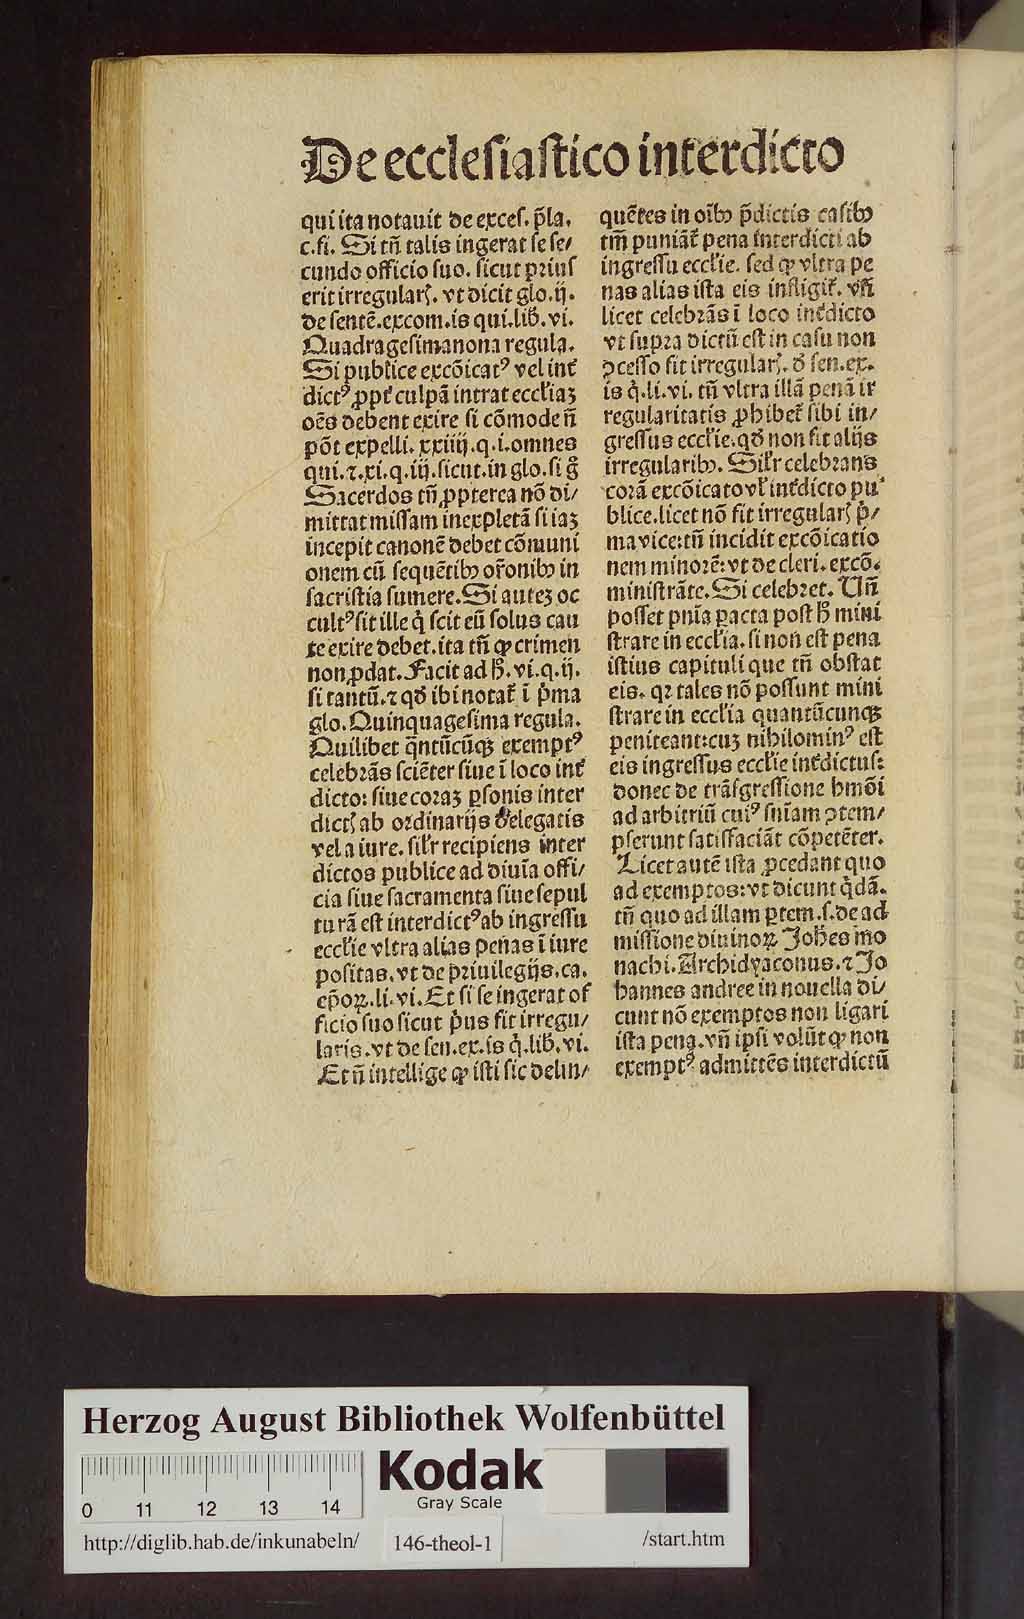 De ecclesiastico interdicto
qui ita notauit de exces. p̄la.
c.fi. Si tn̄ talis ingerat se se/
cundo officio suo. sicut prius
erit irregularꝭ. vt dicit glo.ij.
de sentē.excom.is qui.lib̄.vi.
Quadragesimanona regula.
Si publice excōicatꝰ vel int̄
dictꝰ ꝓpt̄ culpā intrat eccl'iaꝫ
oēs debent exire si cōmode n̄
pōt expelli. xxiiij.q.i.omnes
qui.⁊.xi.q.iij.sicut.in glo.si g̊
Sacerdos tn̄ ꝓpterea nō di/
mittat missam inexpletā si iaꝫ
incepit canonē debet cōmuni
onem cū sequētibꝰ or̄onibꝰ in
sacristia sumere. Si auteꝫ oc
cultꝰ sit ille q̇ scit eū solus cau
te exire debet. ita tn̄ ꝙ crimen
non ꝓdat. Facit ad h̄.vi.q.ij.
si tantū.⁊ qd̄ ibi notat̄ ī ṗma
glo. Quinquagesima regula.
Quilibet q̄ntūcūqꝫ exemptꝰ
celebrās sciēter siue ī loco int̄
dicto: siue coraꝫ ꝑsonis inter
dictꝭ ab ordinarijs delegatis
vel a iure. sil'r recipiens inter
dictos publice ad diuīa offi/
cia siue sacramenta siue sepul
turā est interdictꝰ ab ingressu
eccl'ie vltra alias penas ī iure
positas. vt de priuilegijs.ca.
ep̄oꝝ.li.vi. Et si se ingerat of
ficio suo sicut ṗus fit irregu/
laris. vt de sen.ex.is q̇.lib̄.vi.
Et n̄ intellige ꝙ isti sic delin/
quētes in oībꝰ p̄dictis casibꝰ
tm̄ puniāt̄ pena interdicti ab
ingressu eccl'ie. sed ꝙ vltra pe
nas alias ista eis infligit̄. vn̄
licet celebrās ī loco int̄dicto
vt supra dictū est in casu non
ↄcesso fit irregularꝭ. d̄ sen.ex.
is q̇.li.vi. tn̄ vltra illā penā ir
regularitatis ꝓhibet̄ sibi in/
gressus eccl'ie. qd̄ non fit alijs
irregularibꝰ. Sil'r celebrans
corā excōicato vl' int̄dicto pu
blice. licet nō fit irregularꝭ ṗ/
ma vice: tn̄ incidit excōicatio
nem minorē: vt de cleri. excō.
ministrāte. Si celebret. Un̄
posset pn̄ia ꝑacta post h̄ mini
strare in eccl'ia. si non est pena
istius capituli que tn̄ obstat
eis. qꝛ tales nō possunt mini
strare in eccl'ia quantūcunqꝫ
peniteant: cuꝫ nihilominꝰ est
eis ingressus eccl'ie int̄dictus:
donec de trāsgressione hmōi
ad arbitriū cuiꝰ sniam ↄtem/
pserunt satisfaciāt cōpetēter.
Licet autē ista ꝓcedant quo
ad exemptos: vt dicunt q̇dā.
tn̄ quo ad illam ꝑtem.s.de ad
missione diuinoꝝ Joh̄es mo
nachi. Archidyaconus. ⁊ Jo
hannes andree in nouella di/
cunt nō exemptos non ligari
ista pena. vn̄ ipsi volūt ꝙ non
exemptꝰ admittēs interdictū
Herzog August Bibliothek Wolfenbüttel
Kodak
Gray Scale
0 11 12 13 14
http://diglib.hab.de/inkunabeln/ 146-theol-1 /start.htm